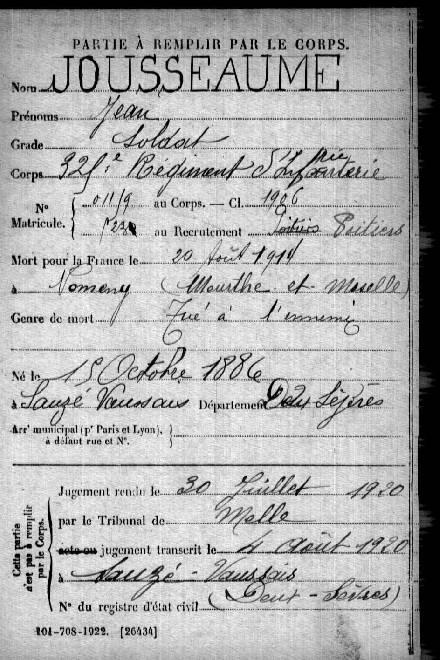 PARTIE À REMPLIR PAR LE CORPS.
Nom JOUSSEAUME
Prénoms Jean
Grade Soldat
Corps 325e Régiment d'Infanterie
N° Matricule. { 011/9 au Corps. — Cl. 1906
au Recrutement Poitiers Poitiers
Mort pour la France le 20 Août 1914
à Nomeny (Meurthe et Moselle)
Genre de mort Tué à l'ennemi
Né le 15 Octobre 1886
à Sauzé Vaussais Département Deux Sèvres
Arr¹ municipal (pr Paris et Lyon), à défaut rue et N°. }
Cette partie n'est pas à remplir par le Corps.
Jugement rendu le 30 Juillet 1920
par le Tribunal de Melle
acte ou jugement transcrit le 4 août 1920
à Sauzé-Vaussais
(Deux-Sèvres)
N° du registre d'état civil
101-708-1922. [26434]